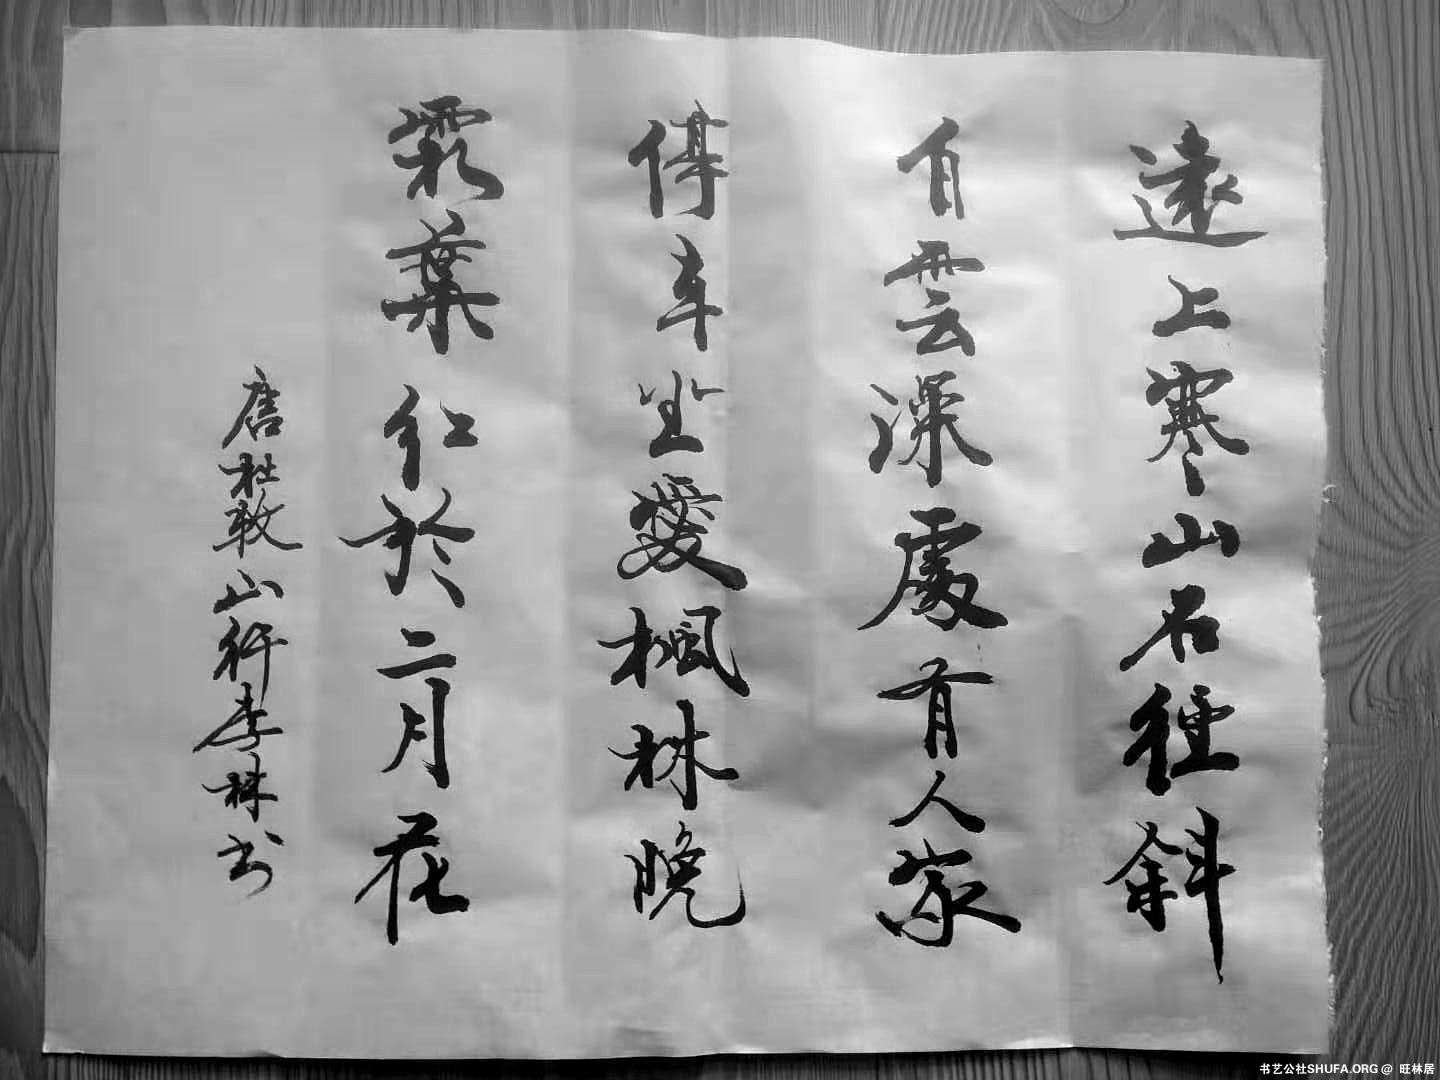 遠上寒山石徑斜
白雲深處有人家
停车坐愛楓林晚
霜葉红於二月花
唐杜牧山行李林书
书艺公社SHUFA.ORG @ 旺林居